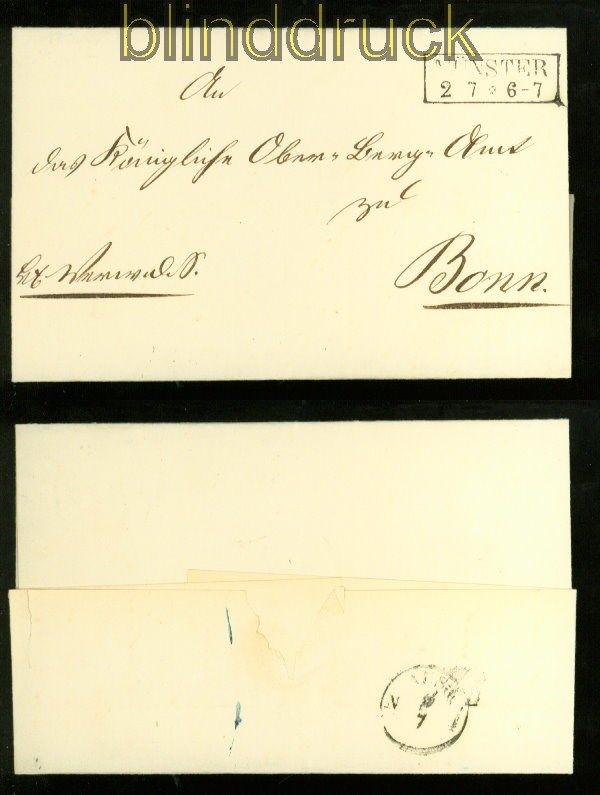 blinddruck
MÜNSTER
2 7 * 6-7
An
das Königliche Ober-Berg-Amt
zu
Bonn.